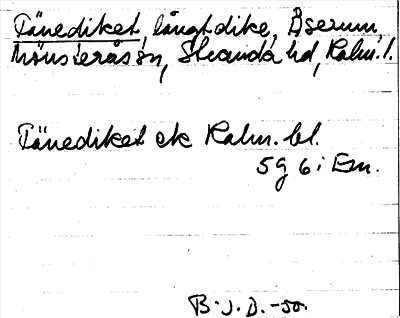 Tänediket, långt dike, Åserum,
Mönsterås sn, Stranda hd, Kalm. l.
Tänediket ek Kalm. bl.
5g 6 i Em.
B.J.D. -50.